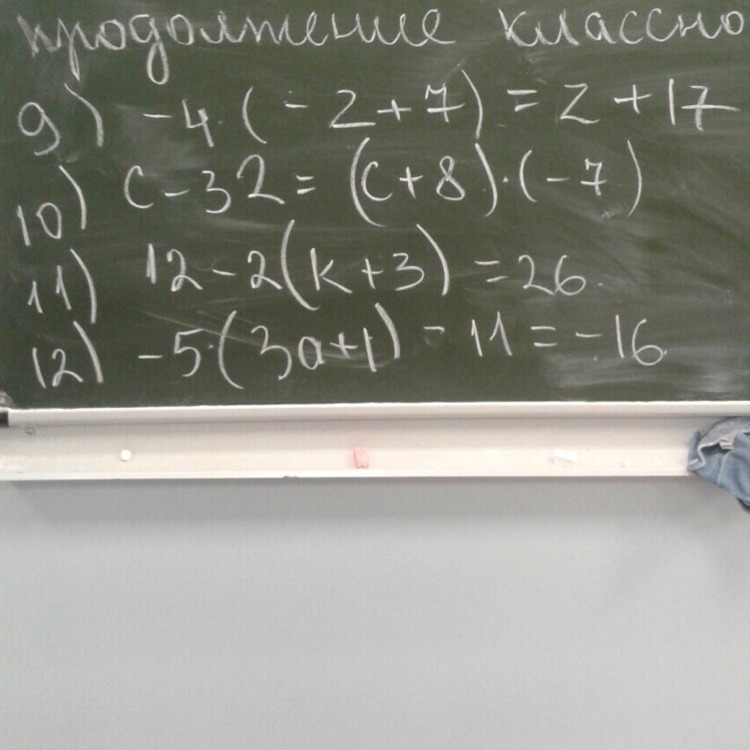 продолжение классно
9) -4(-z+7) = z+17
10) c-32=(c+8)·(-7)
11) 12-2(k+3)=26
12) -5·(3a+1)-11=-16